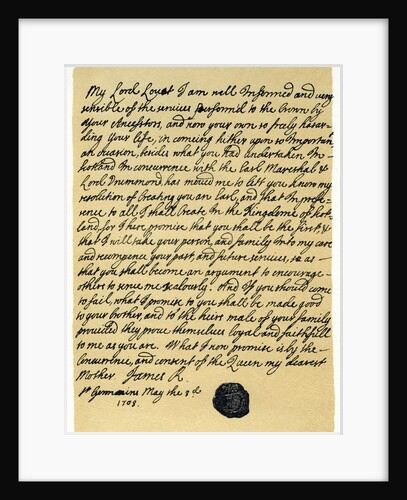 My Lord Lovat I am well Informed and very
sensible of the services perform'd to the Crown by
your Ancestors, and now your own so freely hasar-
ding your life, in coming hither upon so Importan
an ocasion, besides what you had undertaken In
scotland In concurrence with the Earl Mareshal &
Lord Drummond, has moved me to lett you know my
resolution of Creating you an Earl, and that In prefe-
rence to all I shall Create In the Kingdome of scot-
land, for I here promise that you shall be the first, &
that I will take your person, and family Into my care
and recompence your past, and future services, so as
that you shall become an argument to encourage
others to serve me zealously. And If you should come
to fail, what I promise to you shall be made good
to your brother, and to the heirs male of your family
provided they prove themselves loyal and faithfull
to me as you are. What I now promise is by the
Concurrence, and consent of the Queen my dearest
Mother. James R.
St Germains May the 3d
1703.